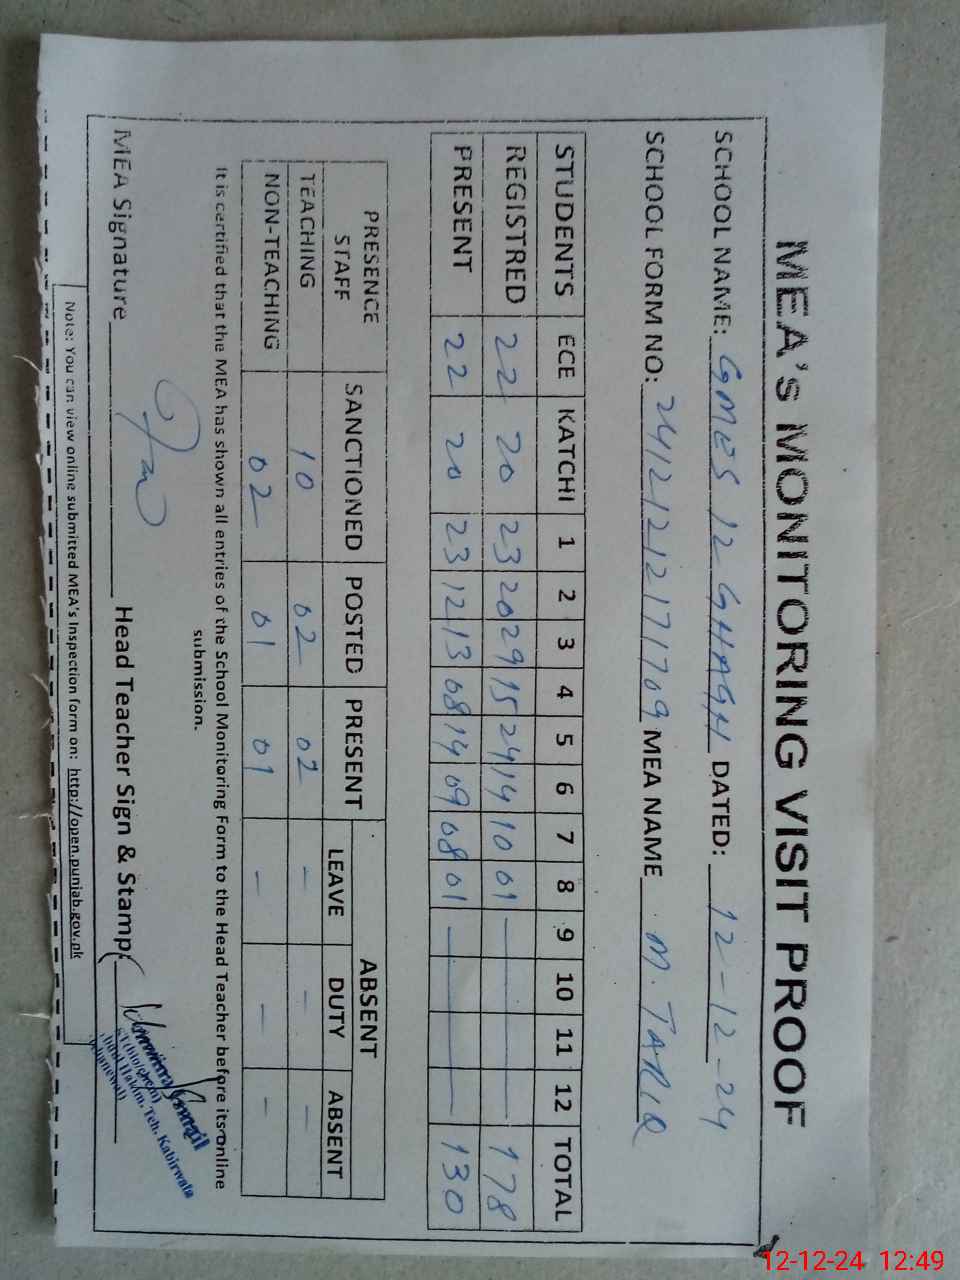 MEA's MONITORING VISIT PROOF
SCHOOL NAME: GMES 12 GHAGH DATED: 12-12-24
SCHOOL FORM NO: 24121212171709 MEA NAME M. TARIQ
STUDENTS ECE KATCHI 1 2 3 4 5 6 7 8 9 10 11 12 TOTAL
REGISTRED 22 20 23 20 29 15 24 14 10 01 178
PRESENT 22 20 23 12 13 08 14 09 08 01 130
PRESENCE STAFF SANCTIONED POSTED PRESENT ABSENT
LEAVE DUTY ABSENT
TEACHING 10 02 02 - - -
NON-TEACHING 02 01 01 - - -
It is certified that the MEA has shown all entries of the School Monitoring Form to the Head Teacher before its online
submission.
MEA Signature Head Teacher Sign & Stamp:
Teh. Kabirwala
Note: You can view online submitted MEA's Inspection form on: http://open.punjab.gov.pk
12-12-24 12:49